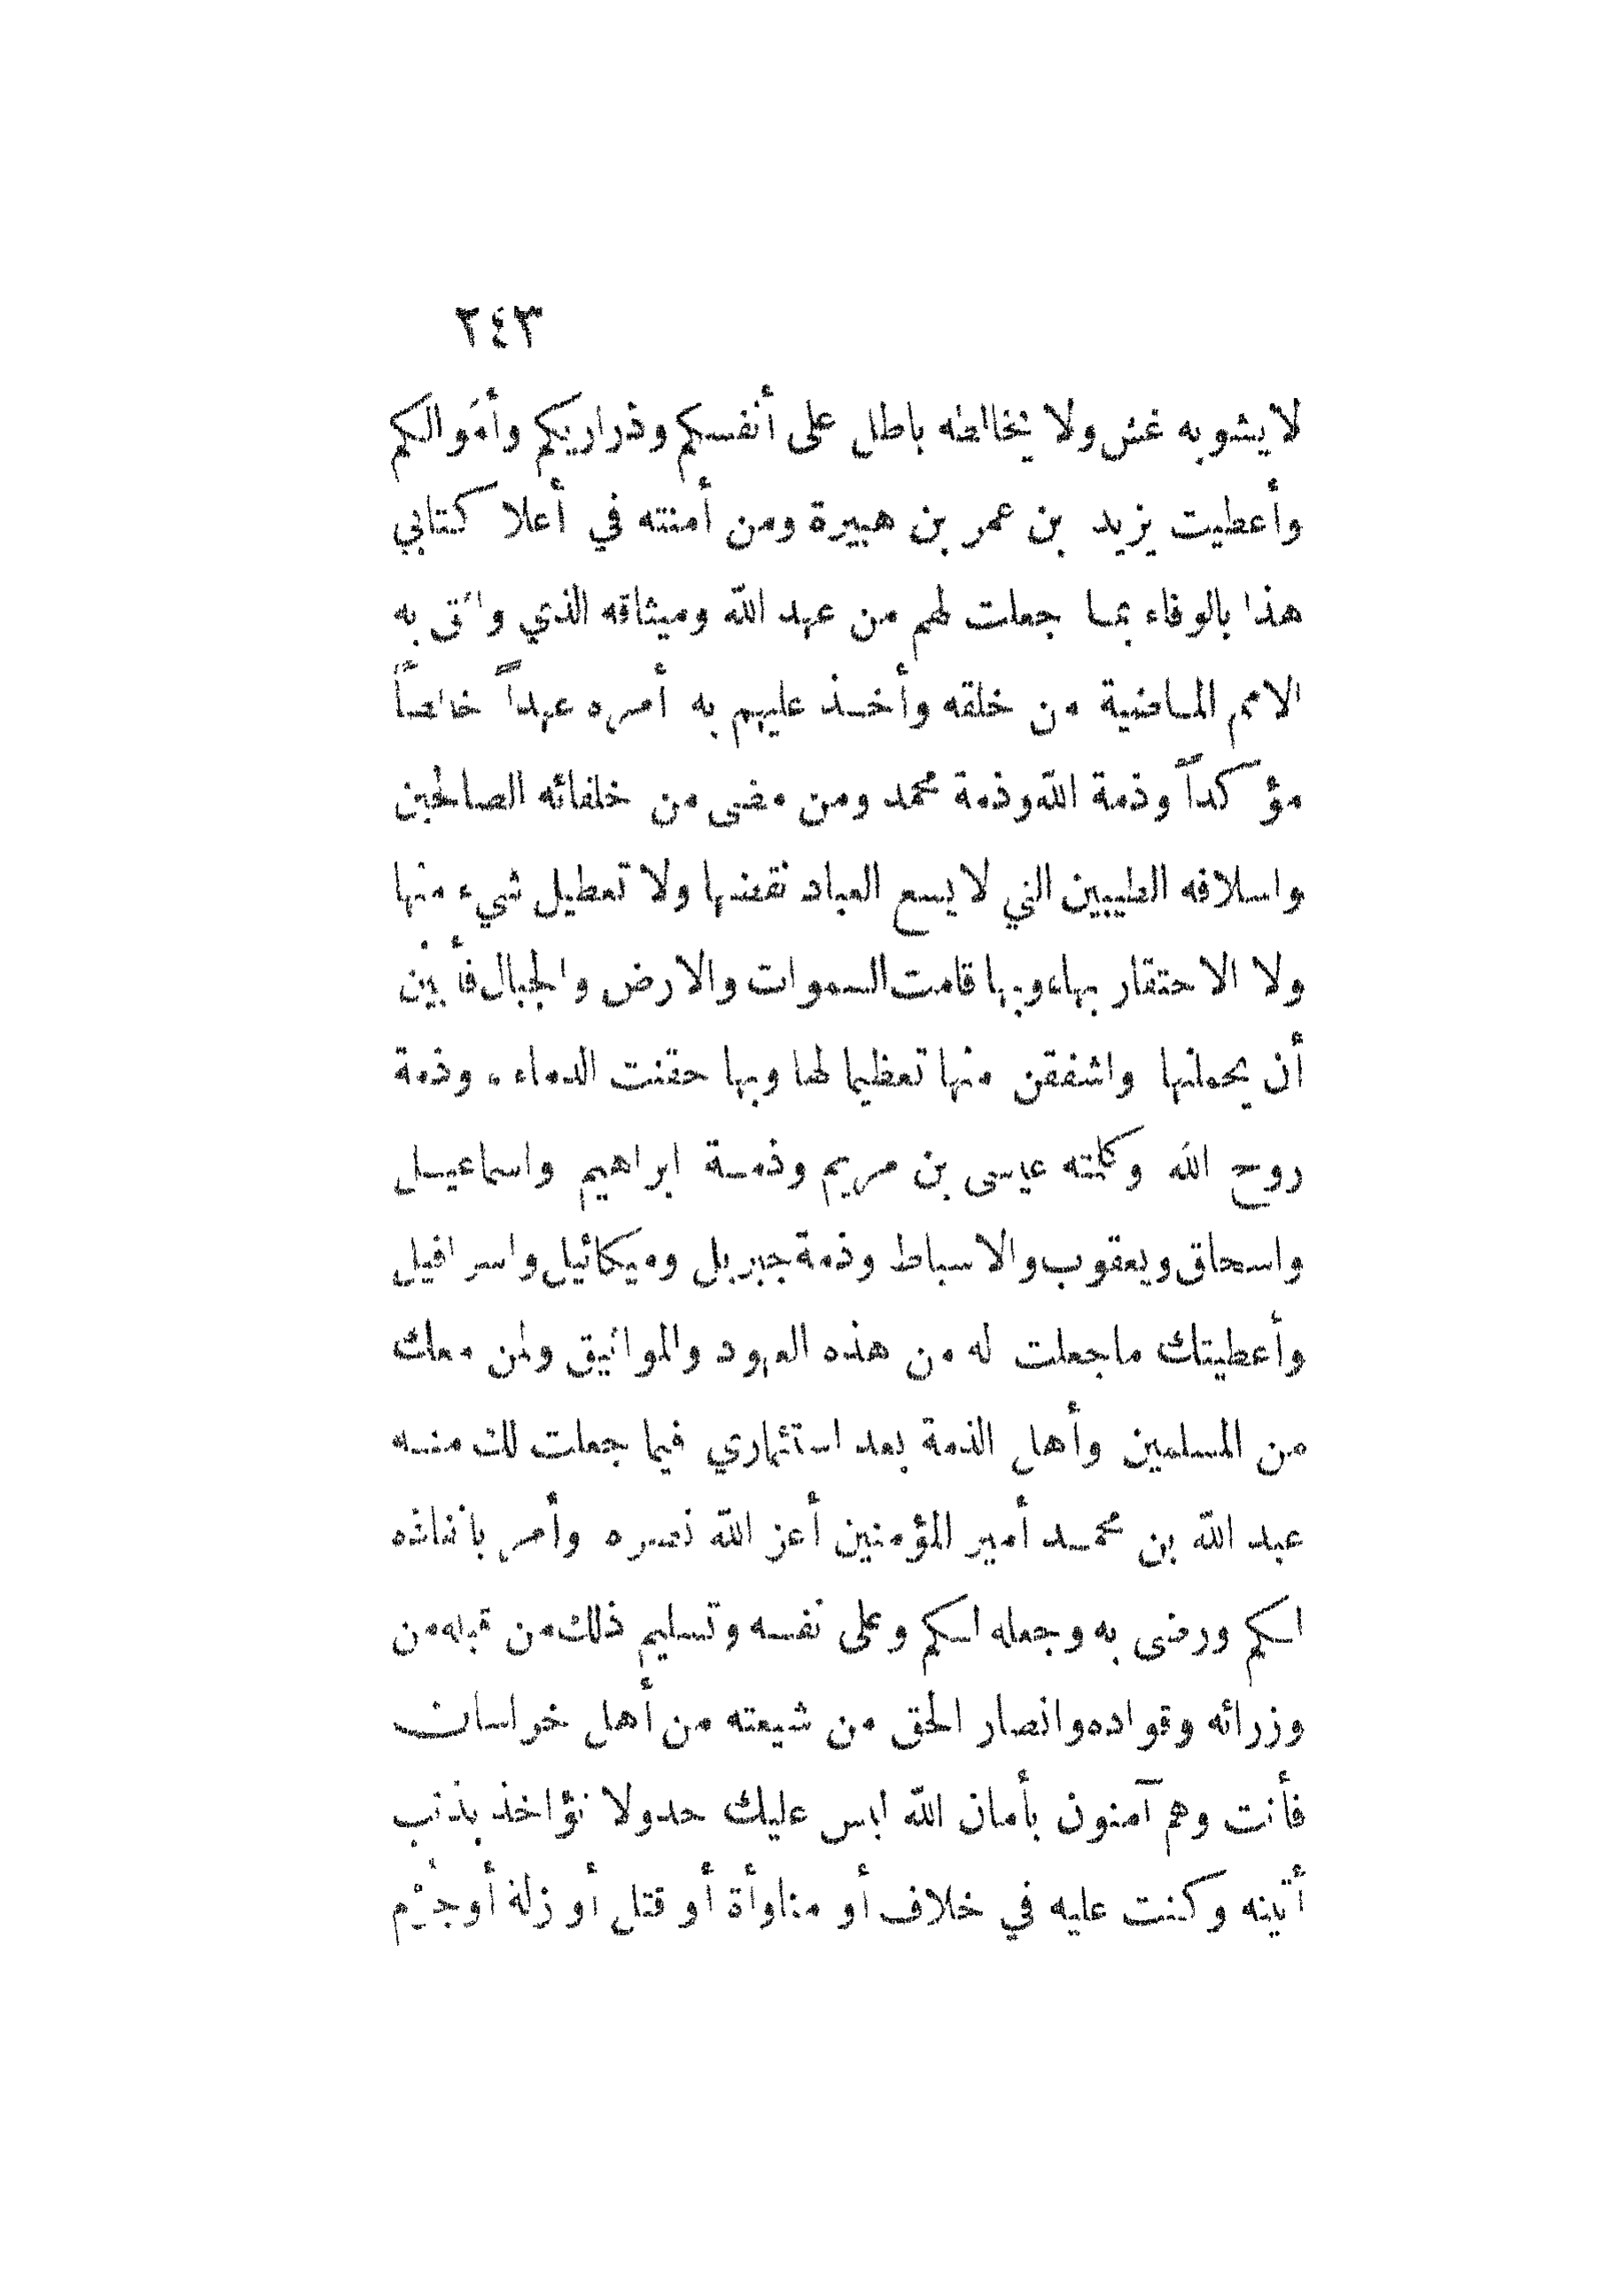 ٢٤٣
لا يشوبه غش ولا يخالطه باطل على أنفسكم وذراريكم وأموالكم
وأعطيت يزيد بن عمر بن هبيرة ومن أمنته في أعلا كتابي
هذا بالوفاء بما جعلت لهم من عهد الله وميثاقه الذي واثق به
الامم الماضية من خلقه وأخذ عليهم به أمره عهداً خالصاً
مؤكداً وذمة الله وذمة محمد ومن مضى من خلفائه الصالحين
واسلافه الطيبين التي لا يسع العباد نقضها ولا تعطيل شيء منها
ولا الاحتقار بها، وبها قامت السموات والارض والجبال فأبين
أن يحملنها واشفقن منها تعظيما لها وبها حقنت الدماء . وذمة
روح الله وكلمته عيسى بن مريم وذمة ابراهيم واسماعيل
واسحاق ويعقوب والاسباط وذمة جبريل وميكائيل واسرافيل
وأعطيتك ماجعلت له من هذه العهود والمواثيق ولمن معك
من المسلمين وأهل الذمة بعد استئماري فيما جعلت لك منه
عبد الله بن محمد أمير المؤمنين أعز الله نصره وأمر بانفاذه
لكم ورضى به وجعله لكم وعلى نفسه وتسليم ذلك من قبله من
وزرائه وقواده وانصار الحق من شيعته من أهل خراسان
فأنت وهم آمنون بأمان الله ليس عليك حد ولا نؤاخذ بذنب
أتينه وكنت عليه في خلاف أو مناوأة أو قتل أو زلة أو جرم